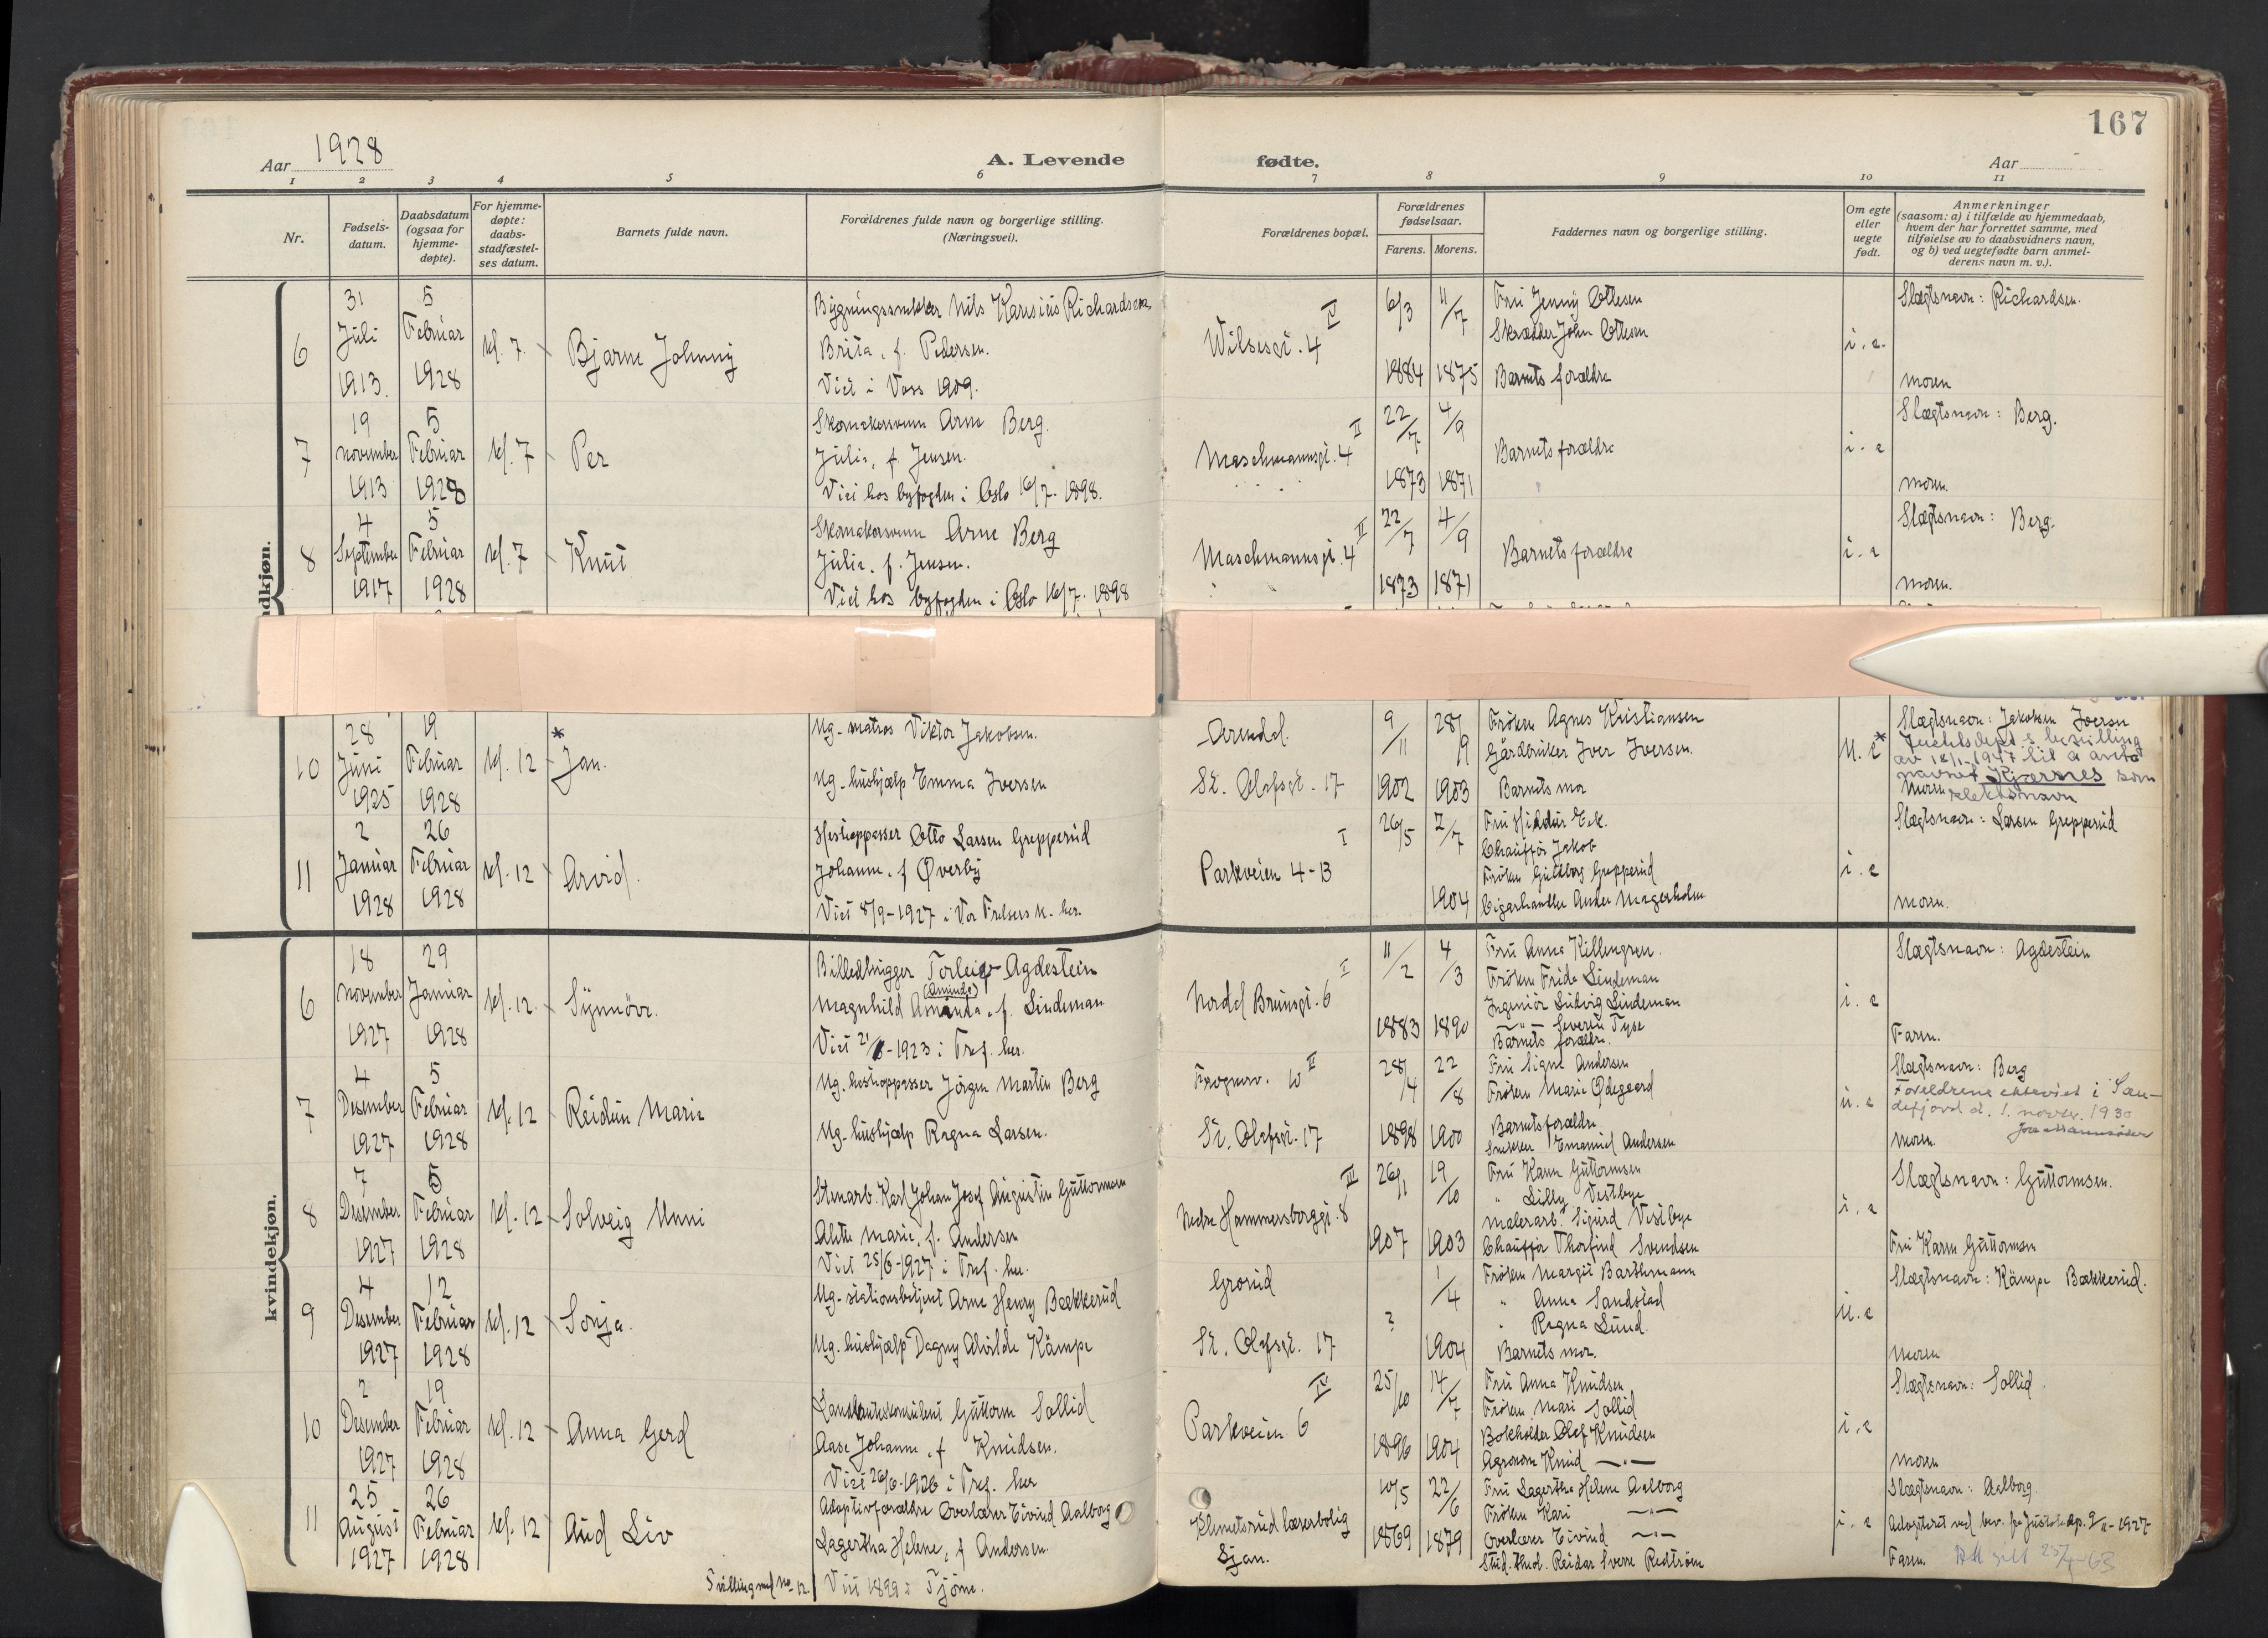 167
Aar 1928
A. Levende fødte.
Aar
1 2 3 4 5 6 7 8 9 10 11
Nr.
Fødsels-
datum.
Daabsdatum
(ogsaa for
hjemme-
døpte).
For hjemme-
døpte:
daabs-
stadfæstel-
ses datum.
Barnets fulde navn.
Forældrenes fulde navn og borgerlige stilling.
(Næringsvei).
Forældrenes bopæl.
Forældrenes
fødselsaar.
Farens. Morens.
Faddernes navn og borgerlige stilling.
Om egte
eller
uegte
født.
Anmerkninger
(saasom: a) i tilfælde av hjemmedaab,
hvem der har forrettet samme, med
tilføielse av to daabsvidners navn,
og b) ved uegtefødte barn anmel-
derens navn m. v.).
dkjøn.
6
31
Juli
1913.
5
Februar
1928
kl. 7
Bjarne Johnny
Bygningssnekker Nils Richardsen
Brita, f. Pedersen.
Viet i Voss 1909.
Wilsesgt. 4 IV
6/3
1884
11/7
1875
Fru Jenny Ottesen
Skrædder John Ottesen
Barnets forældre
i. e.
Slægtsnavn: Richardsen.
moren
7
19
november
1913
5
Februar
1928
kl. 7
Per
Skomakersvenn Arne Berg.
Julie, f. Jensen.
Viet hos byfogden i Oslo 16/7. 1898.
Maschmannsgt. 4 II
22/7
1873
4/9
1871
Barnets forældre
i. e
Slægtsnavn: Berg.
moren.
8
4
September
1917
5
Februar
1928
kl. 7
Knut
Skomakersvenn Arne Berg
Julie, f. Jensen.
Viet hos byfogden i Oslo 16/7. 1898
Maschmannsgt. 4 II
22/7
1873
4/9
1871
Barnets forældre
i. e
Slægtsnavn: Berg.
moren.
10
28
Juni
1925
19
Februar
1928
kl. 12
*
Jan.
Ug. matros Viktor Jakobsen.
Ug. hushjælp Emma Iversen
Arendal.
St. Olafsgt. 17
9/11
1902
28/9
1903
Frøken Agnes Kristiansen
Gårdbruker Iver Iversen.
Barnets mor
u. e
Slægtsnavn: Jakobsen Iversen
* Justitsdept.s bevilling
av 18/11-1947 til å anta
navnet Kjærnes som
slektsnavn
Moren
11
2
Januar
1928
26
Februar
1928
kl. 12
Arvid.
Hestepasser Otto Larsen Grepperud
Johanne, f Øverby
Viet 8/9-1927 i Vor Frelsers k. her.
Parkveien 4-B I
26/5
2/7
1904
Chauffør Jakob
Frøken Guldborg Grepperud
Cigarhandler Ander Magerholm
i. e
Slægtsnavn: Larsen Grepperud
moren.
kvindekjøn.
6
18
november
1927
29
Januar
1928
kl. 12.
Synnöve.
Billedhugger Torleif Agdestein
(Aminda)
Magnhild Amanda, f. Lindeman
Viet 21/8-1923 i Tref. her.
Nordal Brunsgt. 6 I
11/2
1883
4/3
1890
Fru Anna Killengren.
Frøken Frida Lindeman
Ingeniør Ludvig Lindeman
—"— Severin Tyse
Barnets forældre.
i. e
Slægtsnavn: Agdestein
Faren.
7
4
Desember
1927
5
Februar
1928
kl. 12
Reidun Marie
Ug. hestepasser Jörgen Martin Berg
Ug. hushjælp Ragna Larsen.
Frognerv. 10 II
St. Olafsgt. 17
28/4
1898
22/8
1900
Fru Signe Andersen
Frøken Marie Ødegaard
Barnets forældre
Snekker Emanuel Andersen
u. e
Slægtsnavn: Berg
Foreldrene ekteviet i San-
defjord d. 1. novbr. 1930
moren.
8
7
Desember
1927
5
Februar
1928
kl. 12
Solveig Unni
Stenarb. Karl Johan Josef Augustin Guttormsen
Alette Marie, f. Andersen
Viet 25/6-1927 i Tref. her.
Nedre Hammersborggt. 8 III
26/1
1907
19/10
1903
Fru Karen Guttormsen
" Lilly Vestbye
Malerarb. Sigurd Vestbye
Chauffør Thorfind Svendsen
i. e
Slægtsnavn: Guttormsen.
Fru Karen Guttormsen
9
4
Desember
1927
12
Februar
1928
kl. 12
Sonja.
Ug. stationsbetjent Arne Henry Bækkerud
Ug. hushjælp Dagny Alvilde Kämpe
Grorud
St. Olafsgt. 17
?
1/4
1904
Frøken Margit Barthmann
" Anna Sandstad
" Ragna Lund.
Barnets mor.
u. e
Slægtsnavn: Kämpe Bækkerud.
moren
10
2
Desember
1927
19
Februar
1928
kl. 12
Anna Gerd
Landbrukskonsulent Guttorm Sollid
Aase Johanne, f Knudsen.
Viet 26/6-1926 i Tref. her
Parkveien 6 IV
25/10
1896
14/7
1904
Fru Anna Knudsen
Frøken Mari Sollid
Bokholder Olaf Knudsen
Agronom Knud —"—
i. e
Slægtsnavn: Sollid.
moren
11
25
August
1927
26
Februar
1928
kl. 12
Aud Liv
Tvilling med no 12.
Adoptivforældre Overlærer Eivind Aalborg
Lagertha Helene, f Andersen.
Viet 1899 i Tjøme.
Klemetsrud lærerbolig
Ljan.
10/5
1869
22/6
1879
Fru Lagertha Helene Aalborg
Frøken Kari —"—
Overlærer Eivind —"—
Stud. theol. Reidar Sverre Redtröm
i. e
Slægtsnavn: Aalborg
Adoptert ved bev. fra Justisdep. 9/11-1927
Faren.